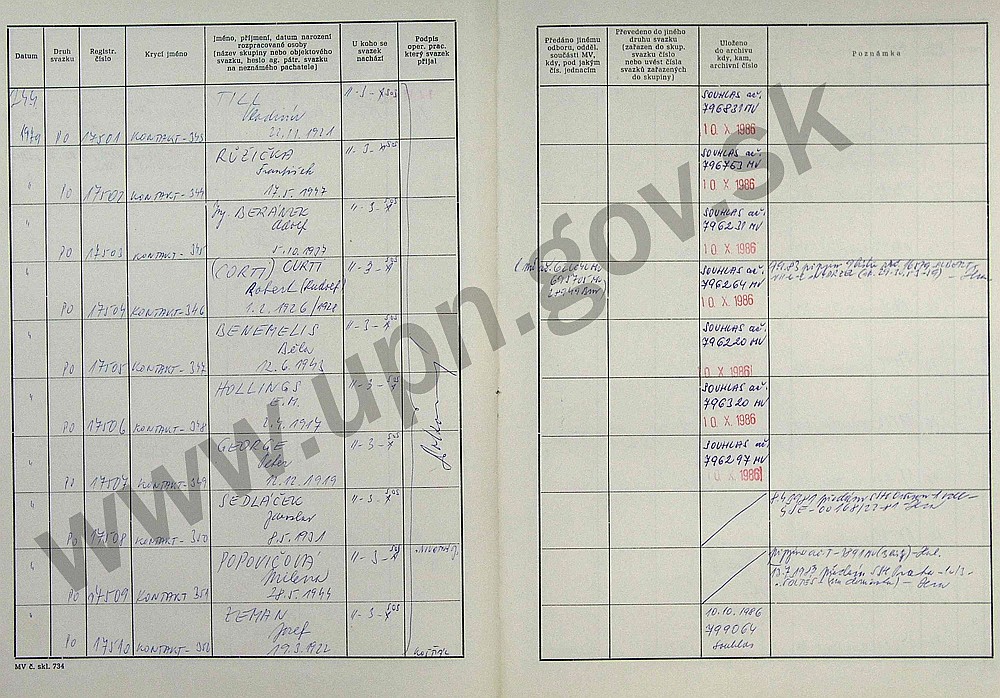 Datum
Druh
svazku
Registr.
číslo
Krycí jméno
Jméno, příjmení, datum narození
rozpracované osoby
(název skupiny nebo objektového
svazku, heslo ag. pátr. svazku
na neznámého pachatele)
U koho se
svazek
nachází
Podpis
oper. prac.
který svazek
přijal
Předáno jinému
odboru, odděl.
součásti MV,
kdy, pod jakým
čís. jednacím
Převedeno do jiného
druhu svazku
(zařazen do skup.
svazku číslo
nebo uvést čísla
svazků zařazených
do skupiny)
Uloženo
do archivu
kdy, kam,
archivní číslo
Poznámka
1979 PO 17501 KONTAKT-343
TILL
Vladimír
22.11.1921
II-3-
SOUHLAS ač.
796831 MV
10 X. 1986
" PO 17502 KONTAKT-344
RŮŽIČKA
František
17.5.1947
II-3-
SOUHLAS ač.
796763 MV
10 X. 1986
" PO 17503 KONTAKT-345
Ing. BERÁNEK
Adolf
5.10.1937
II-3-
SOUHLAS ač.
796231 MV
10 X. 1986
" PO 17504 KONTAKT-346
(CORTI) CURTI
Robert (Rudolf)
1.2.1926/1928
II-3-
SOUHLAS ač.
796264 MV
10 X. 1986
" PO 17505 KONTAKT-347
BENEMELIS
Běla
12.6.1943
II-3-
SOUHLAS ač.
796220 MV
10 X. 1986
" PO 17506 KONTAKT-348
HOLLINGS
E.M.
2.4.1917
II-3-
SOUHLAS ač.
796320 MV
10 X. 1986
" PO 17507 KONTAKT-349
GEORGE
Peter
12.12.1919
II-3-
SOUHLAS ač.
796297 MV
10 X. 1986
" PO 17508 KONTAKT-350
SEDLÁČEK
Jaroslav
8.5.1931
II-3-
" PO 17509 KONTAKT 351
POPOVIČOVÁ
Milena
28.5.1944
II-3-
" PO 17510 KONTAKT-352
ZEMAN
Josef
19.3.1922
II-3-
10.10.1986
799064
souhlas
MV č. skl. 734
www.upn.gov.sk